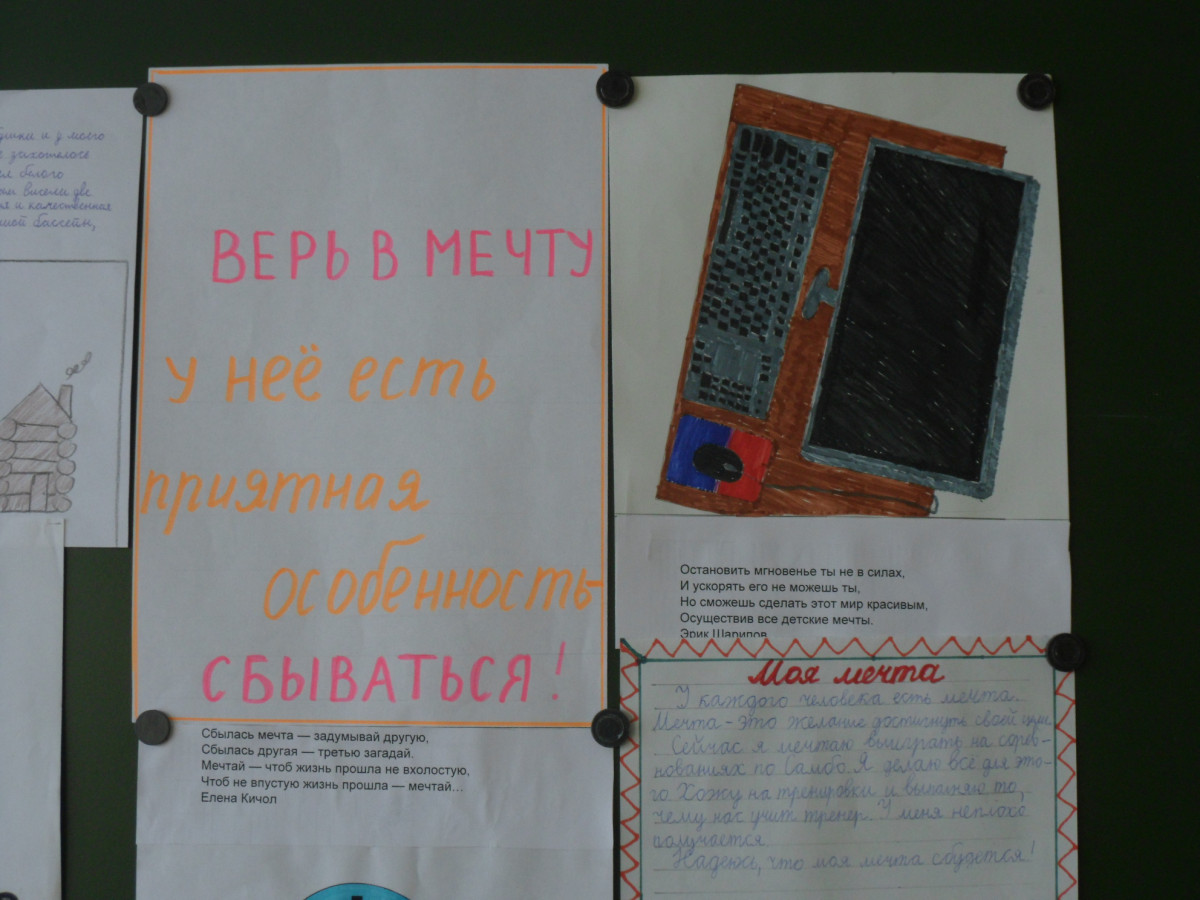 и у моего
белого
висели две
и качественная
бассейн,
ВЕРЬ В МЕЧТУ
У неё есть
приятная
особенность-
СБЫВАТЬСЯ!
Сбылась мечта — задумывай другую,
Сбылась другая — третью загадай.
Мечтай — чтоб жизнь прошла не вхолостую,
Чтоб не впустую жизнь прошла — мечтай…
Елена Кичол
Остановить мгновенье ты не в силах,
И ускорять его не можешь ты,
Но сможешь сделать этот мир красивым,
Осуществив все детские мечты.
Эрик Шарипов
Моя мечта
У каждого человека есть мечта.
Мечта - это желание достигнуть своей цели.
Сейчас я мечтаю выиграть на сорев-
нованиях по Самбо. Я делаю всё для это-
го. Хожу на тренировки и выполняю то,
чему нас учит тренер. У меня неплохо
получается.
Надеюсь, что моя мечта сбудется!